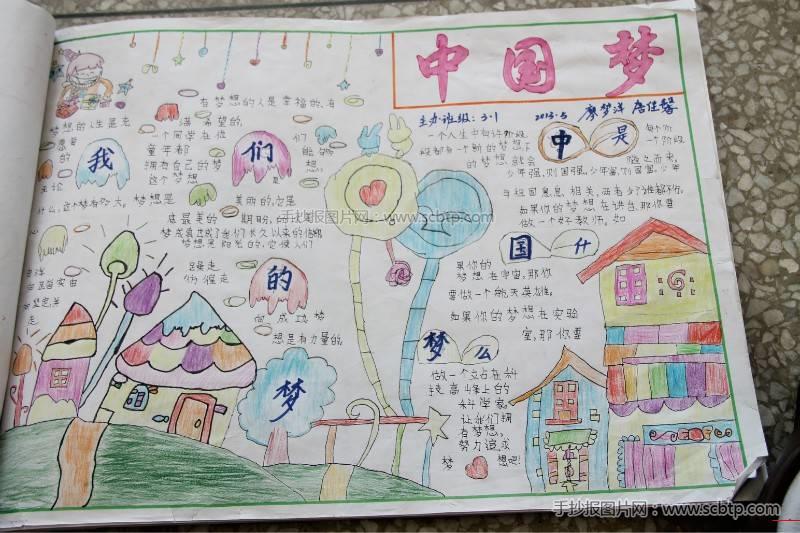 中国梦
主办班级：3.1 2013.5 廖梦洋 唐佳馨
有梦想的人是幸福的，有
满希望的，
一个同学在位
童年都
拥有自己的梦
这个梦想
我
们
美丽的，它是
什么，这个梦有多大，梦想是
底最美的
期盼，
梦成真达成了我们长久以来的信仰
梦想是阳光的，它使人们
躁走
的
向成功梦
想是有力量的
梦
一个人生中有许阶段
每个阶
一个阶段
段都有一个新的梦想，
的梦想就会
随之而来，
中
是
少年强，则国强，少年富，则国富，少年
与祖国息息相关，两者少了谁都不行。
如果你的梦想在讲台，那你要
做一个好教师，如
国
什
果你的
梦想在宇宙，那你
要做一个航天英雄，
如果你的梦想在实验
室，那你要
梦
么
做一个立占在科
技高峰上的
科学家，
让我们拥
有梦想，
努力追求
梦想吧！
手抄报图片网：www.scbtp.com
手抄报图片网：www.scbtp.com